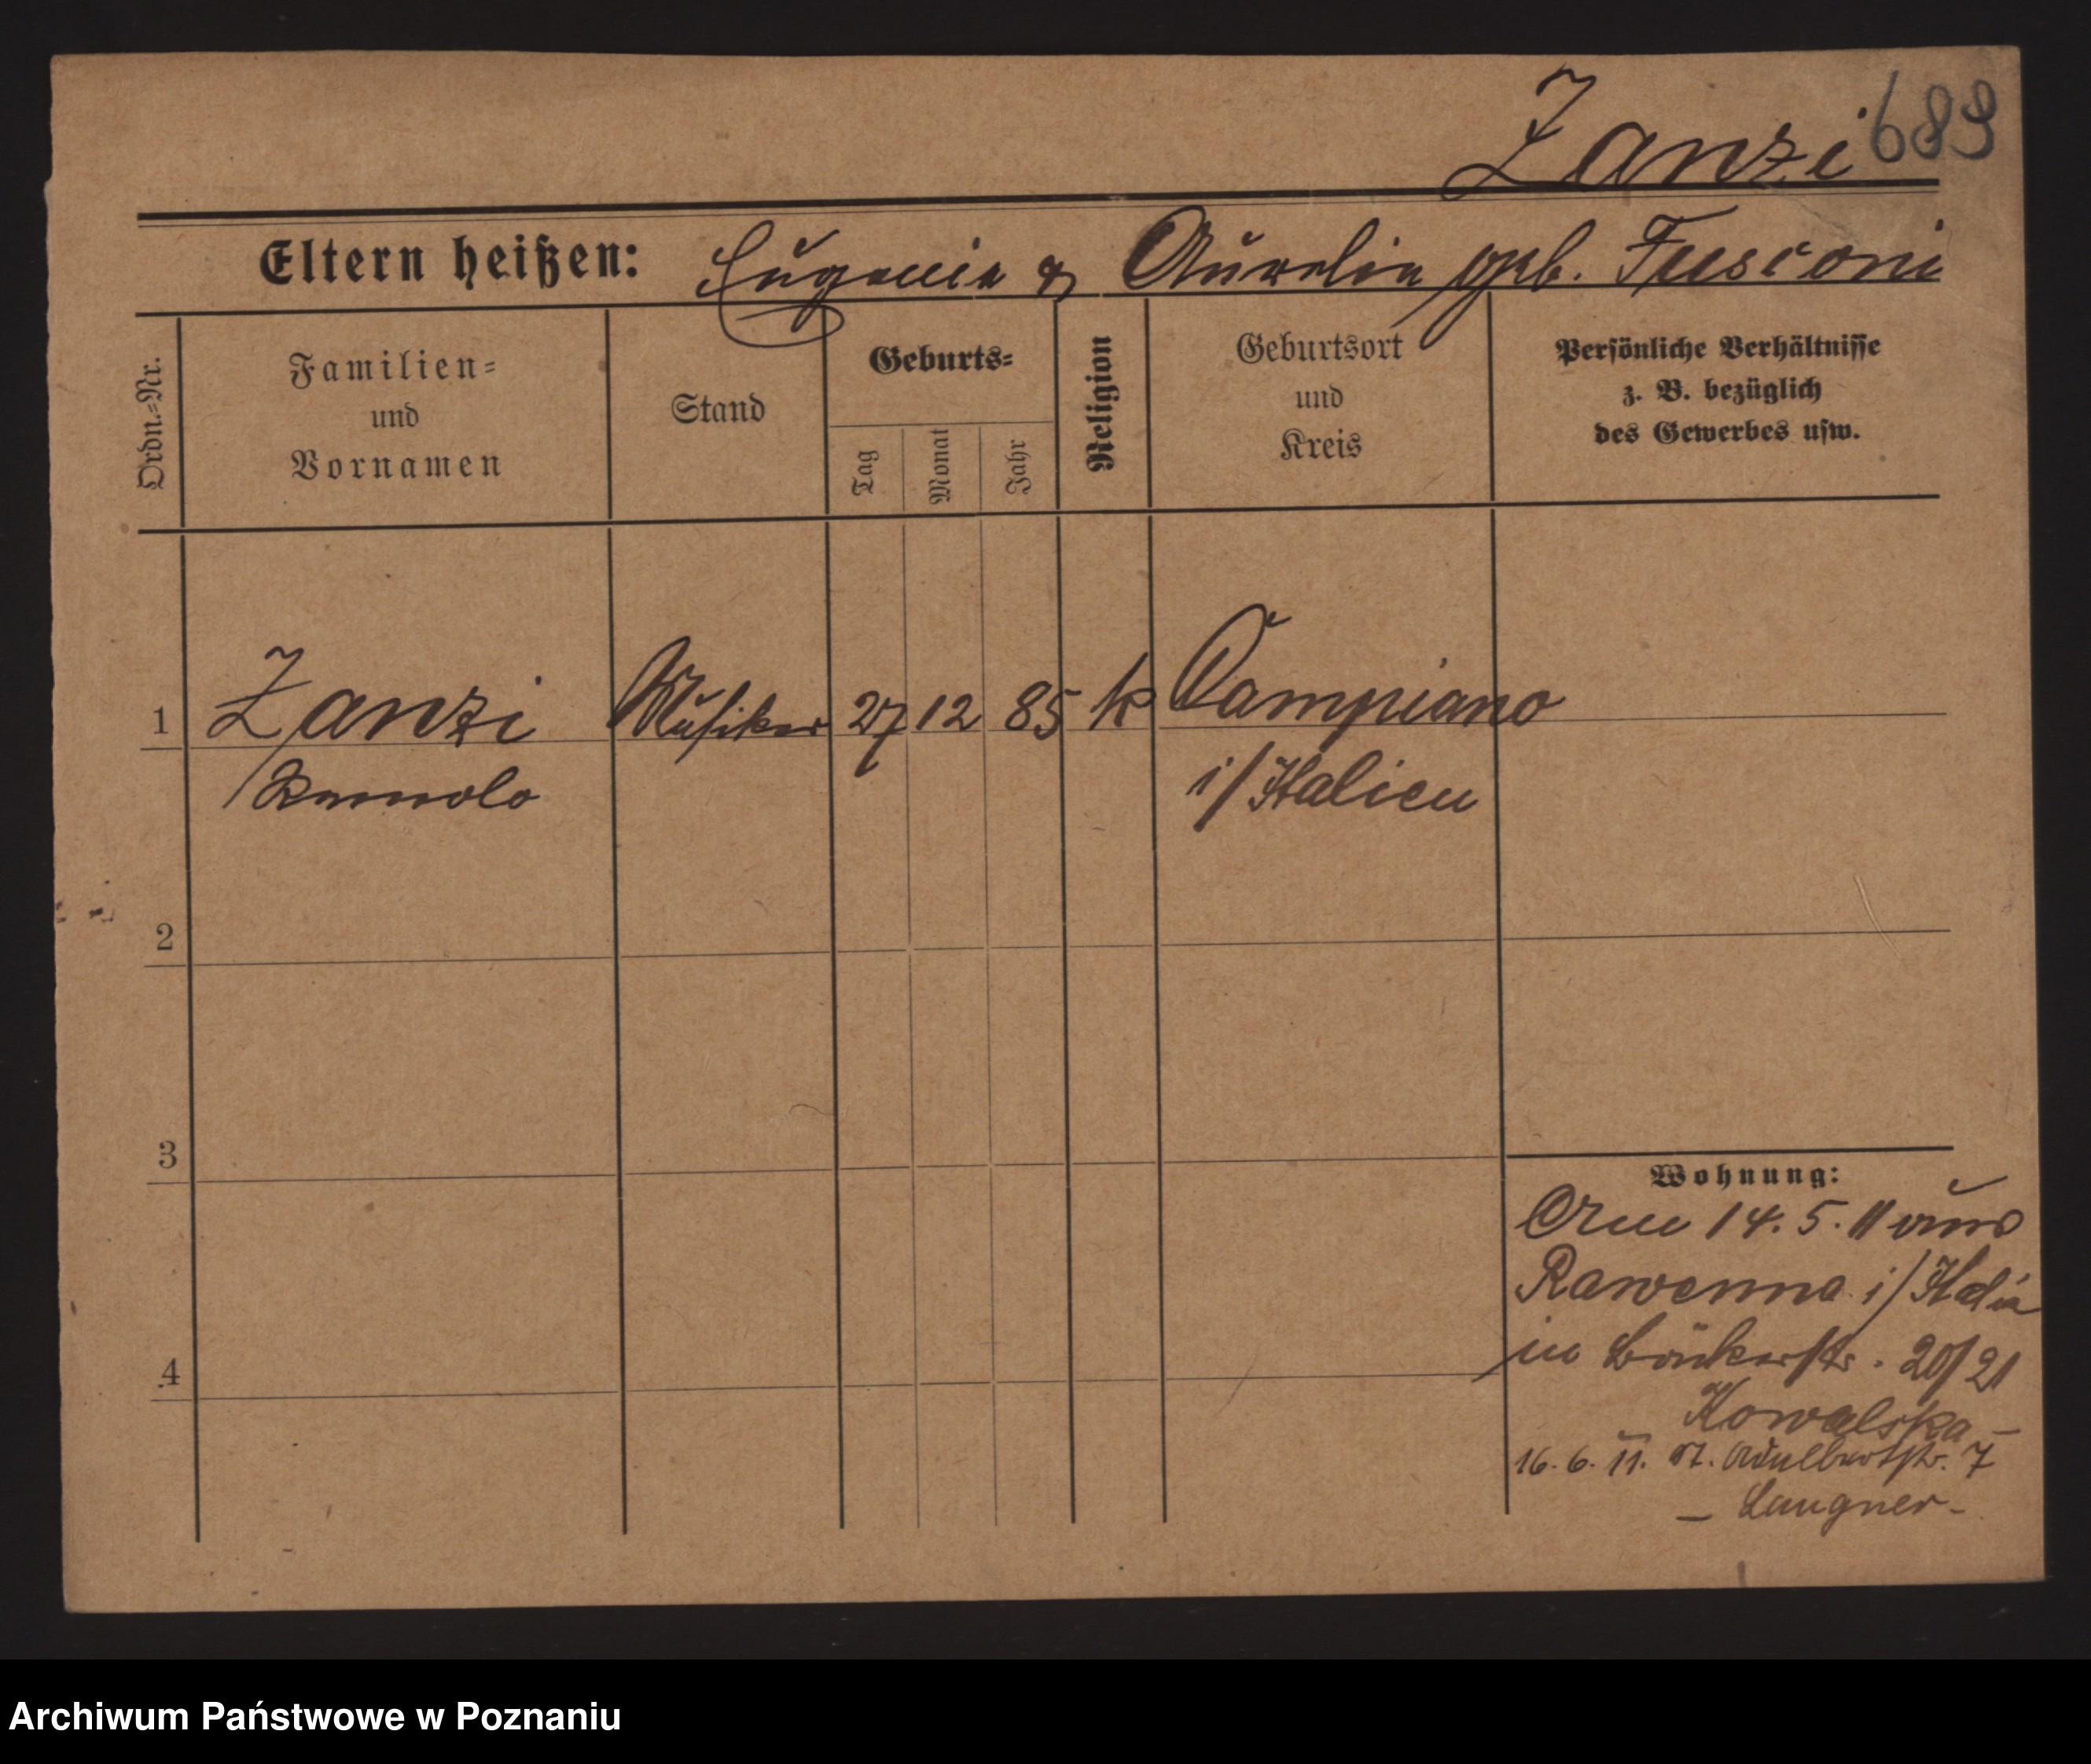 Zanzi 689
Eltern heißen: Eugenio & Aurelia geb. Fusconi
Ordn.=Nr.
Familien=
und
Vornamen
Stand
Geburts=
Tag
Monat
Jahr
Religion
Geburtsort
und
Kreis
Persönliche Verhältnisse
z. B. bezüglich
des Gewerbes usw.
1 Zanzi Musiker 27 12 85 k Campiano
i/Italien
2
3
4
Wohnung:
14. 5. 11 aus
Rawenna i/Italien
in Bäckerstr. 20/21
Kowalska
16. 6. 11. St. Adalbertstr. 7
– Langner –
Archiwum Państwowe w Poznaniu